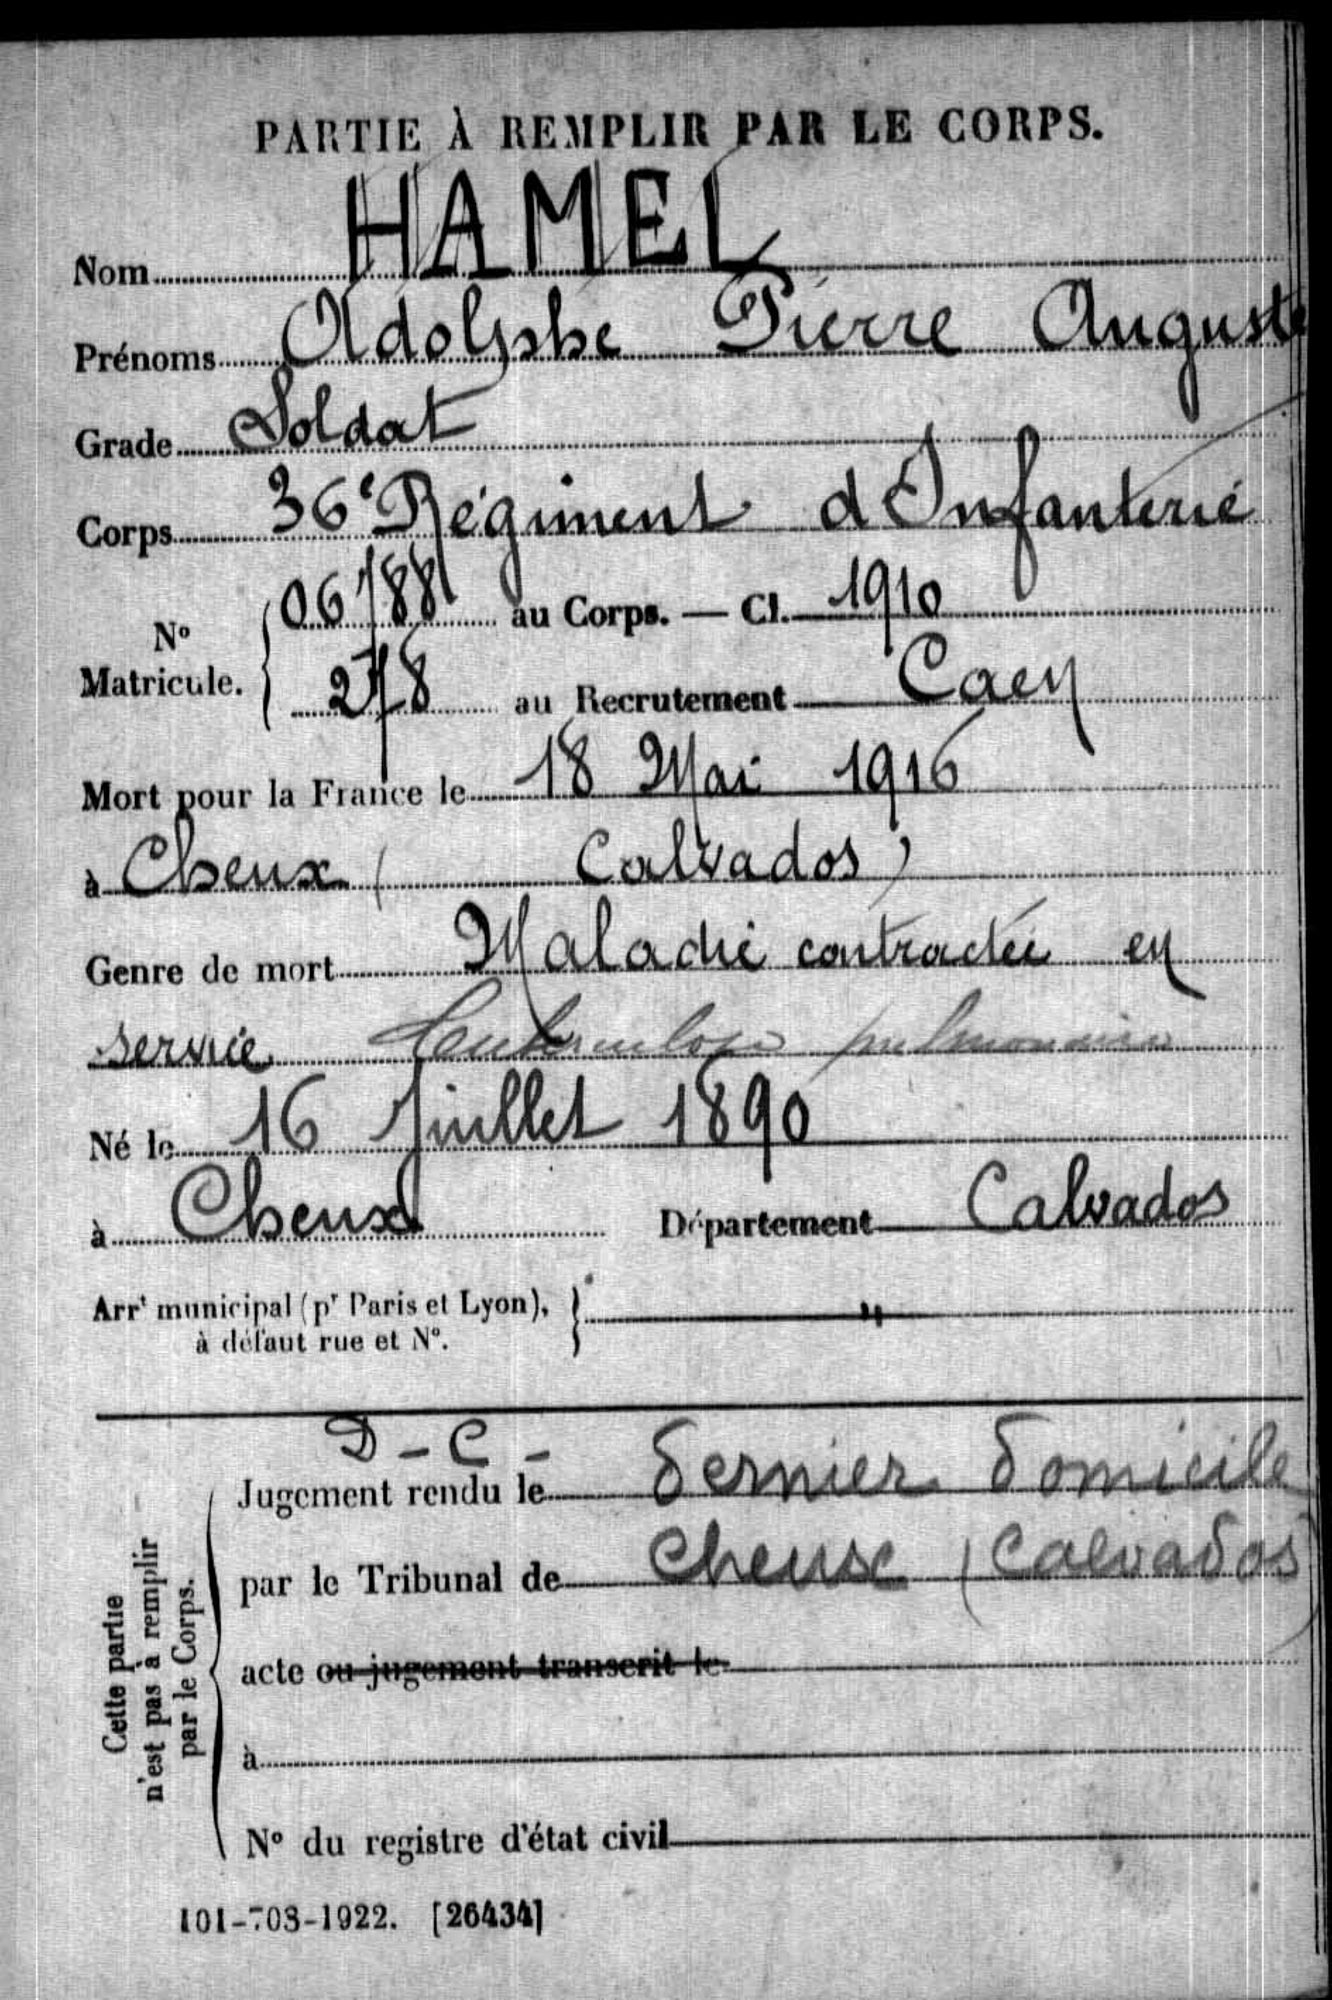 PARTIE À REMPLIR PAR LE CORPS.
Nom HAMEL
Prénoms Adolphe Pierre Auguste
Grade Soldat
Corps 36e Régiment d'Infanterie
No Matricule. 06788 au Corps. — Cl. 1910
278 au Recrutement Caen
Mort pour la France le 18 Mai 1916
à Cheux (Calvados)
Genre de mort Maladie contractée en
service Tuberculose pulmonaire
Né le 16 Juillet 1890
à Cheux Département Calvados
Arrt municipal (pr Paris et Lyon),
à défaut rue et No. "
D - C -
Jugement rendu le dernier domicile
par le Tribunal de Cheux (Calvados)
acte ou jugement transcrit le
à
No du registre d'état civil
Cette partie
n'est pas à remplir
par le Corps.
101-708-1922. [26434]